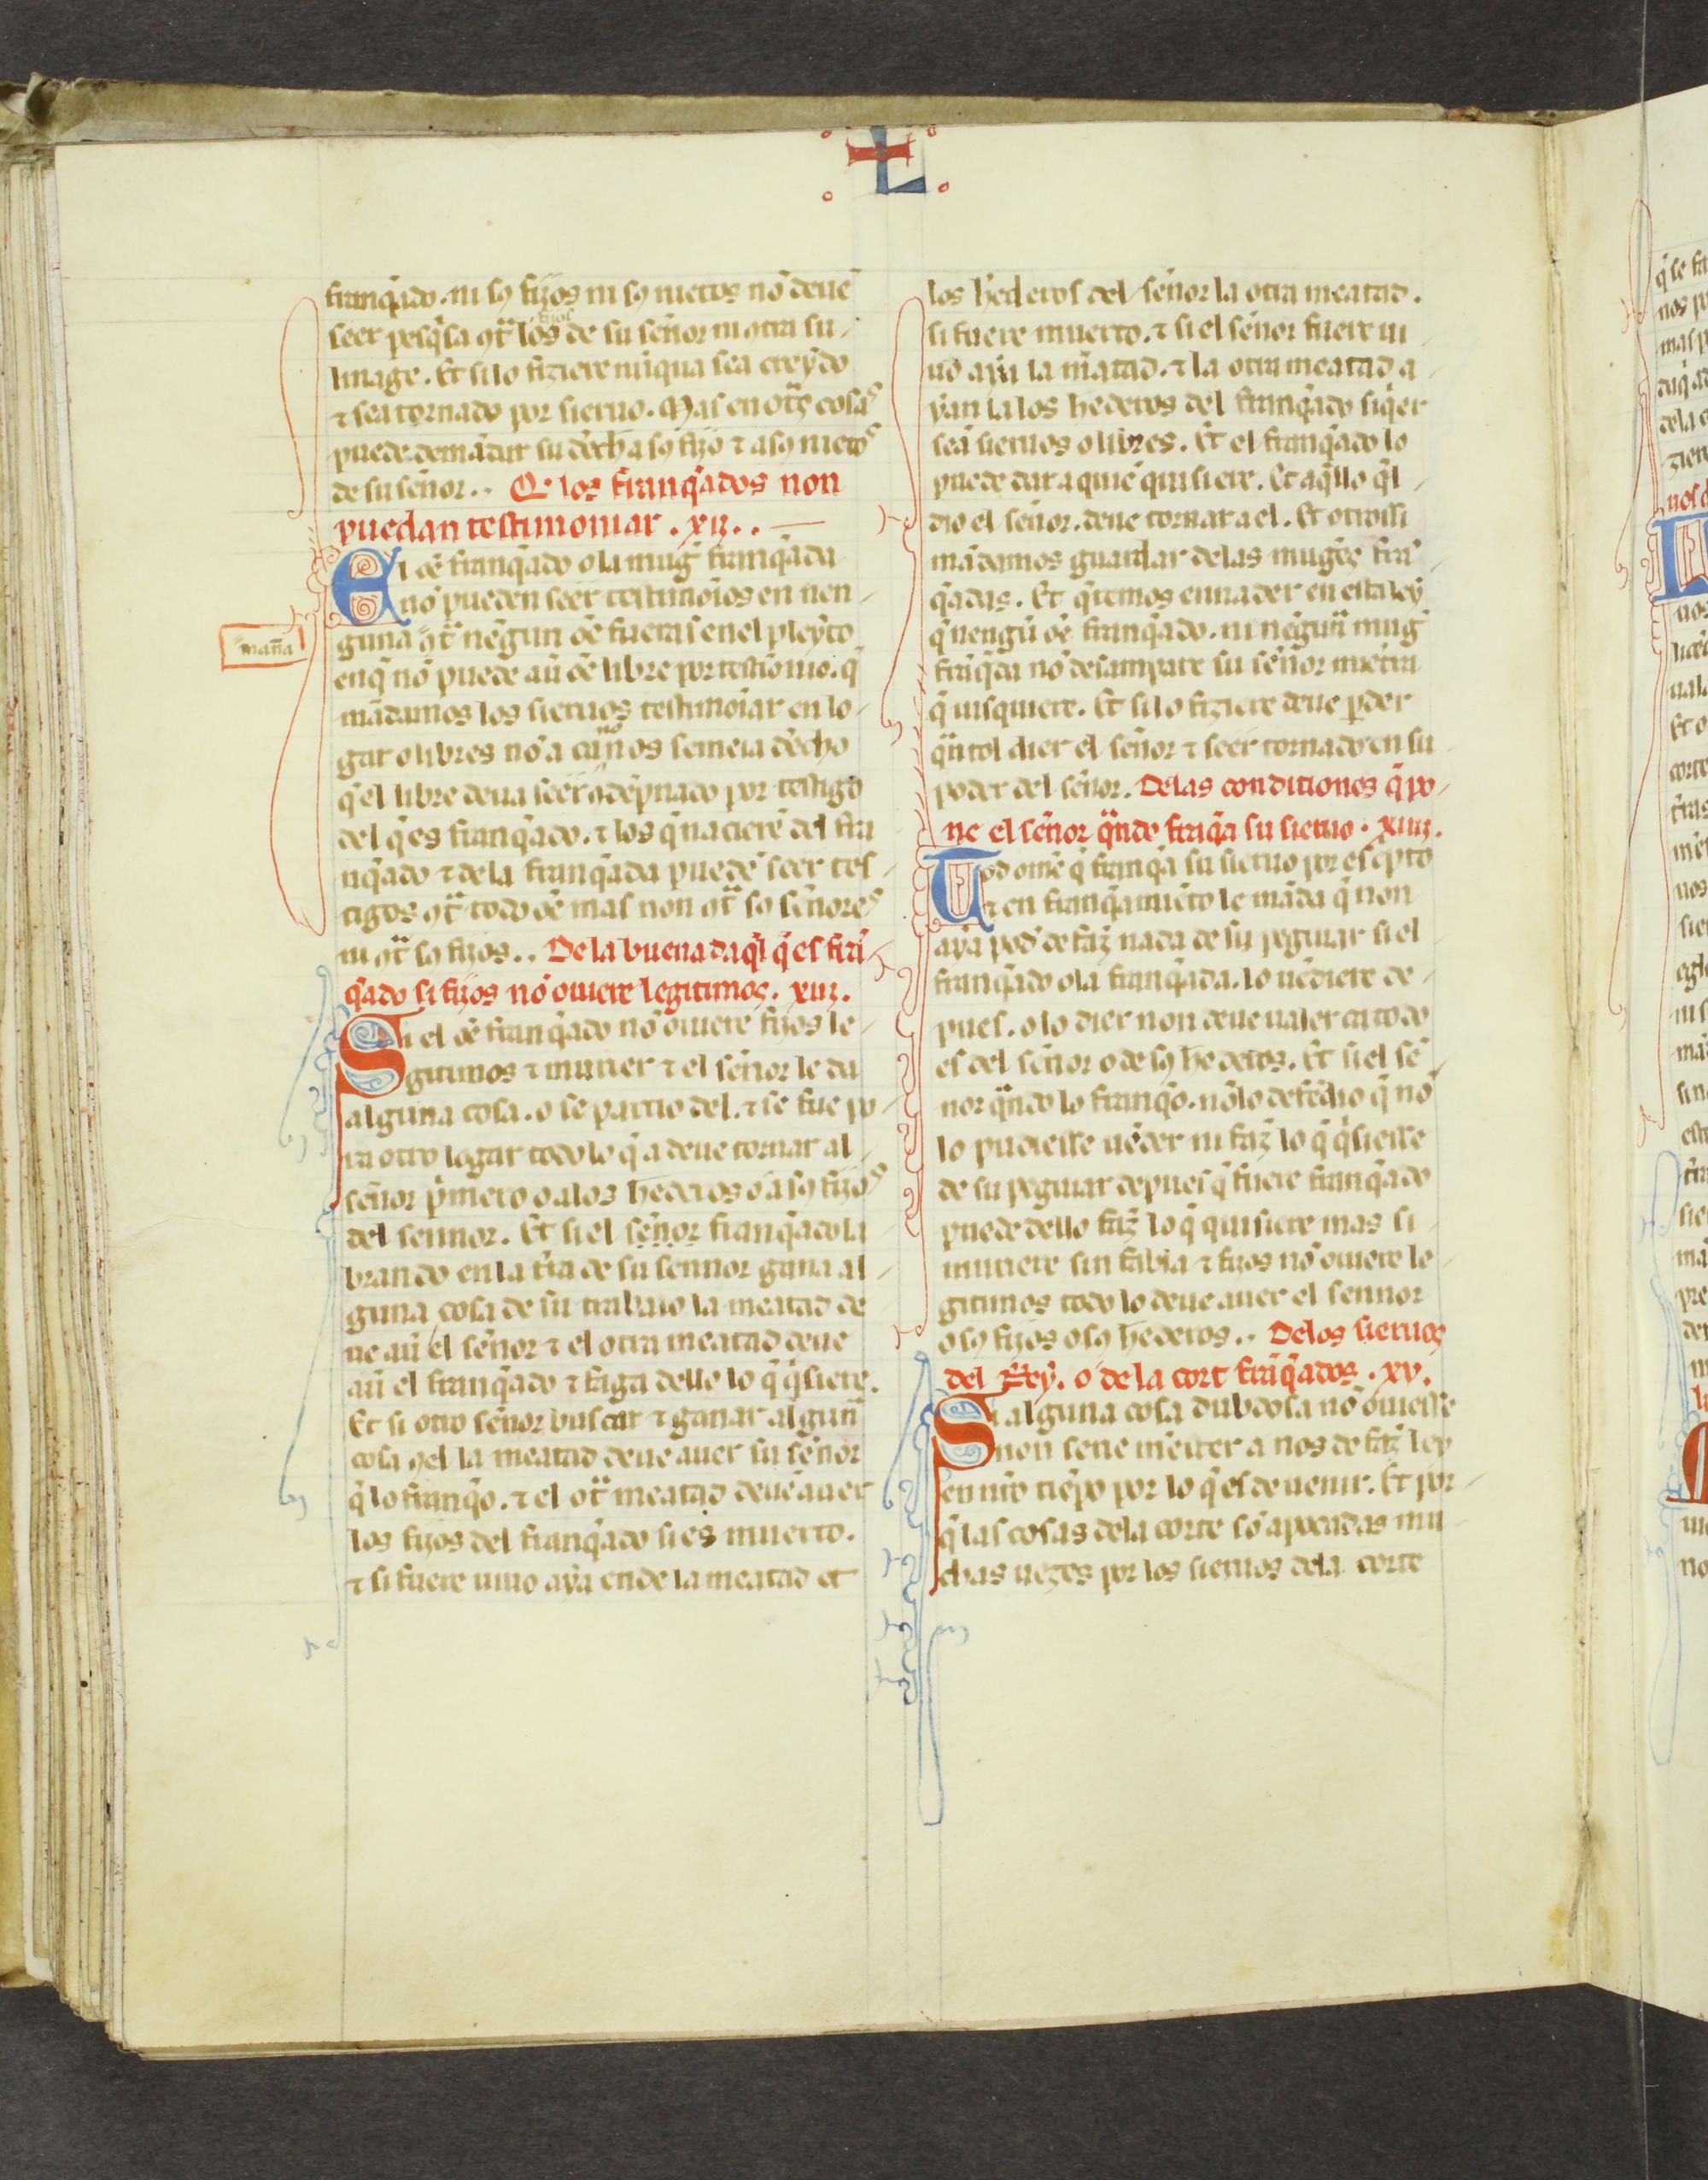 L
franq̃ado. ni sꝯ fijos ni sꝯ nietos nõ deue
seer pesq̃sa ꝯt̃ los fijos de su señor ni otra su
linage. Et si lo fiziere nũqua sea creydo
⁊ sea tornado por sieruo. Mas en ot̃s cosas
puede demãdar su dr̃cho a sꝯ fijo ⁊ a sꝯ nietos
de su señor.. Q̃ los franq̃ados non
puedan testimoniar .xij..
El oẽ franq̃ado o la mug̃ franq̃ada
nõ pueden seer testimoĩos en nen
guna ꝯt̃ nengun oẽ fueras en el pleyto
maña
enq̃ nõ puede aũ oẽ libre por testiõnio. q̃
mãdamos los sieruos testimoĩar en lo
gar o libres nõ a
q̃ el libre deua seer
del q̃ es franq̃ado. ⁊ los q̃ nacierẽ del fra
nq̃ado ⁊ dela franq̃ada puedẽ seer tes
tigos ꝯt̃ todo oẽ mas non ꝯt̃ so señores
ni ꝯt̃ sꝯ fijos.. De la buena daq̃l q̃ es frã
q̃ado si fijos nõ ouiere legitimos. xiij.
Si el oẽ franq̃ado nõ ouiere fijos le
gitimos ⁊ murier ⁊ el señor le da
alguna cosa. o se partio del. ⁊ se fue po
ra otro logar todo lo q̃ a deue tornar al
señor p̃mero o alos hederos o a sꝯ fijos
del sennor. Et si el señor franq̃ado la
brando en la tr̃ra de su sennor gana al
guna cosa de su trabaio la meatad de
ue aũ el señor ⁊ el otra meatad deue
aũ el franq̃ado ⁊ faga dello lo q̃ q̃siere.
Et si otro señor buscar ⁊ ganar algun̄
cosa ꝯel la meatad deue auer su señor
q̃ lo franq̃o. ⁊ el ot̃ meatad deuẽ auer
los fijos del franq̃ado si es muerto.
⁊ si fuere uiuo aya ende la meatad et
los hederos del señor la otra meatad.
si fuere muerto. ⁊ si el señor fuere ui
uo aya la m̃atad. ⁊ la otra meatad a
yan la los hederos del franq̃ado siq̃er
seã sieruos o libres. Et el franq̃ado lo
puede dar a quiẽ quisiere. Et aq̃llo q̃l
dio el señor. deue tornar a el. Et otrossi
mãdamos guardar delas mug̃es frã
q̃adas. Et q̃remos ennader en esta ley
q̃ nengũ oẽ franq̃ado. ni negun̄ mug̃
frãq̃da nõ desampare su señor mietra
q̃ uisquiere. Et si lo fiziere deue ꝑder
q̃ntol dier el señor ⁊ seer tornado en su
poder del señor. Delas conditiones q̃ po
ne el señor q̃ndo frãq̃a su sieruo. xiiij.
Tod omẽ q̃ franq̃a su sieruo por esc̃pto
⁊ en franq̃amiẽto le mãda q̃ non
aya pod̃ de faz̃ nada de su peguiar si el
franq̃ado ola franq̃ada. lo uẽdiere de
pues. o lo dier non deue ualer ca todo
es del señor o de sꝯ hederos. Et si el se
ñor q̃ndo lo franq̃o. nõlo defẽdio q̃ nõ
lo pudiesse uẽder ni faz̃ lo q̃ q̃siesse
de su peguiar depues q̃ fuere franq̃ado
puede dello faz̃ lo q̃ quisiere mas si
muriere sin fabla ⁊ fijos nõ ouiere le
gitimos todo lo deue auer el sennor
o sꝯ fijos o sꝯ hederos.. Delos sieruos
del Rey. o de la cort frãq̃ados. xv.
Si alguna cosa dubdosa nõ ouiesse
non serie mẽster a nos de faz̃ ley
en nr̃o tiẽpo por lo q̃ es de uenir. Et por
q̃ las cosas dela corte sõ apocadas mu
chas uezes por los sieruos dela corte